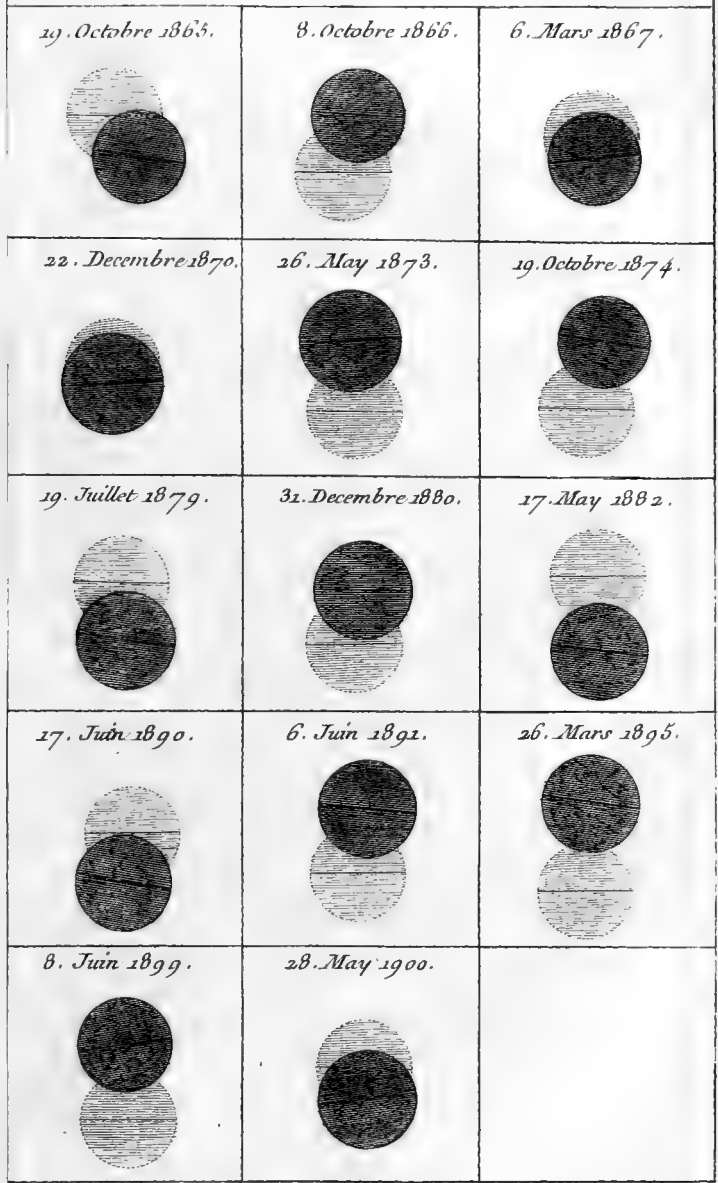 19. Octobre 1865.
8. Octobre 1866.
6. Mars 1867.
22. Decembre 1870.
26. May 1873.
19. Octobre 1874.
19. Juillet 1879.
31. Decembre 1880.
17. May 1882.
17. Juin 1890.
6. Juin 1891.
26. Mars 1895.
8. Juin 1899.
28. May 1900.